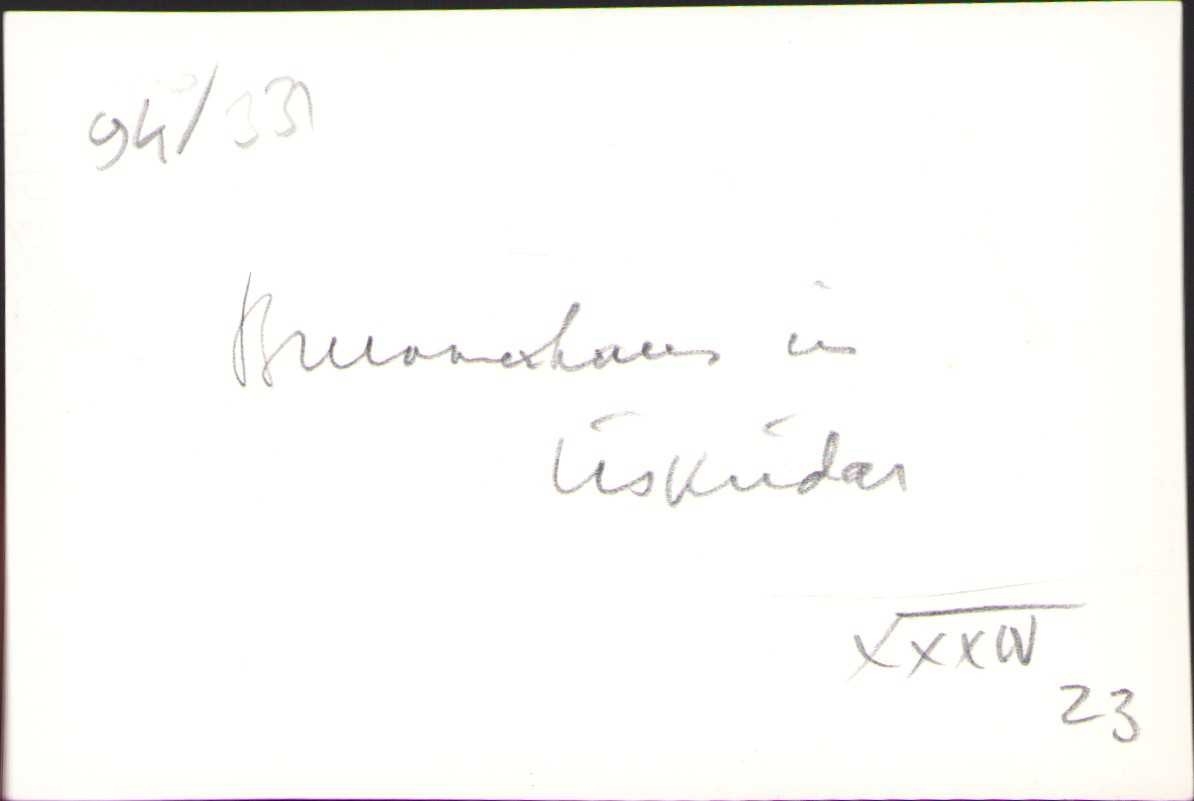 94/331
Brunnenhaus in
Üsküdar
XXXIV
23